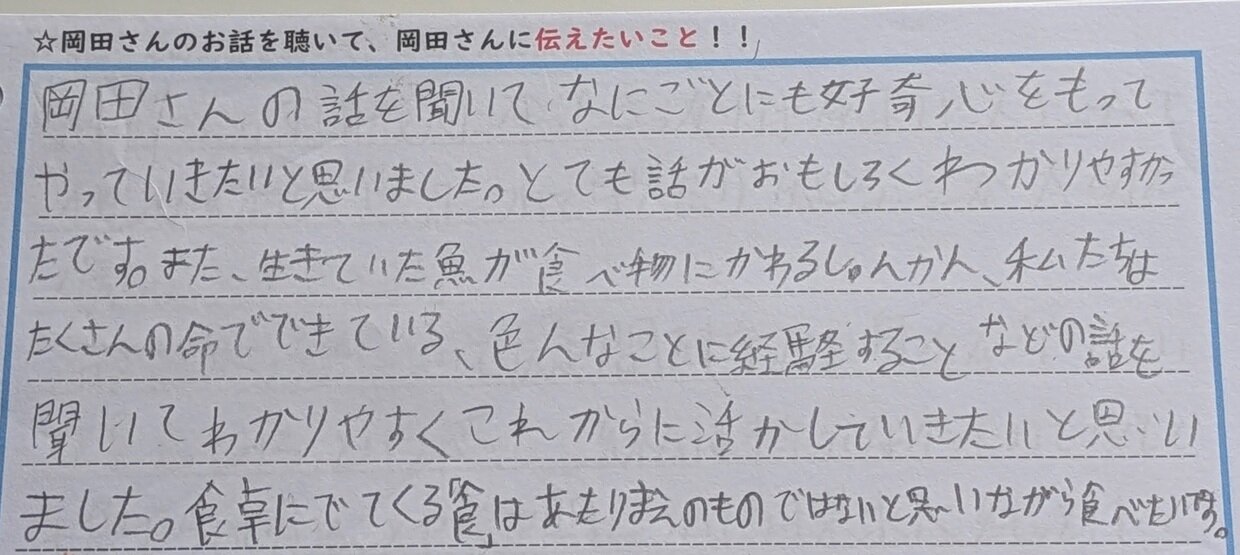 ☆岡田さんのお話を聴いて、岡田さんに伝えたいこと！！
岡田さんの話を聞いて、なにごとにも好奇心をもって
やっていきたいと思いました。とても話がおもしろくわかりやすかっ
たです。また、生きていた魚が食べ物にかわるしゅんかん、私たちは
たくさんの命でできている、色んなことに経験することなどの話を
聞いてわかりやすくこれからに活かしていきたいと思い
ました。食卓にでてくる「食」はあたりまえのものではないと思いながら食べたいです。